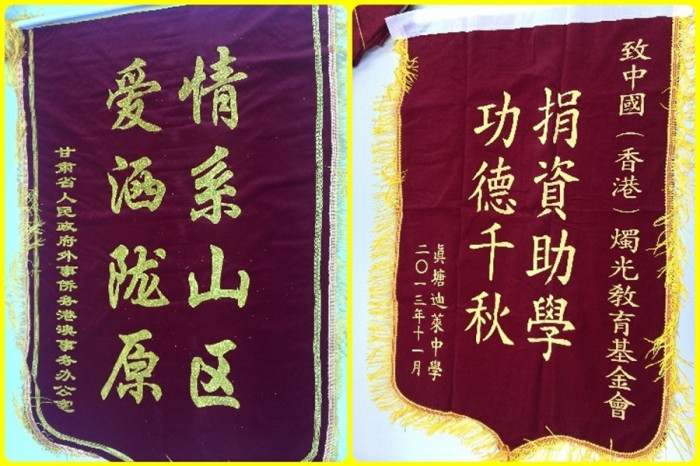 情系山区
爱洒陇原
甘肃省人民政府外事侨务港澳事务办公室
致中國（香港）燭光教育基金會
捐資助學
功德千秋
眞塘迪萊中學
二〇一三年十一月